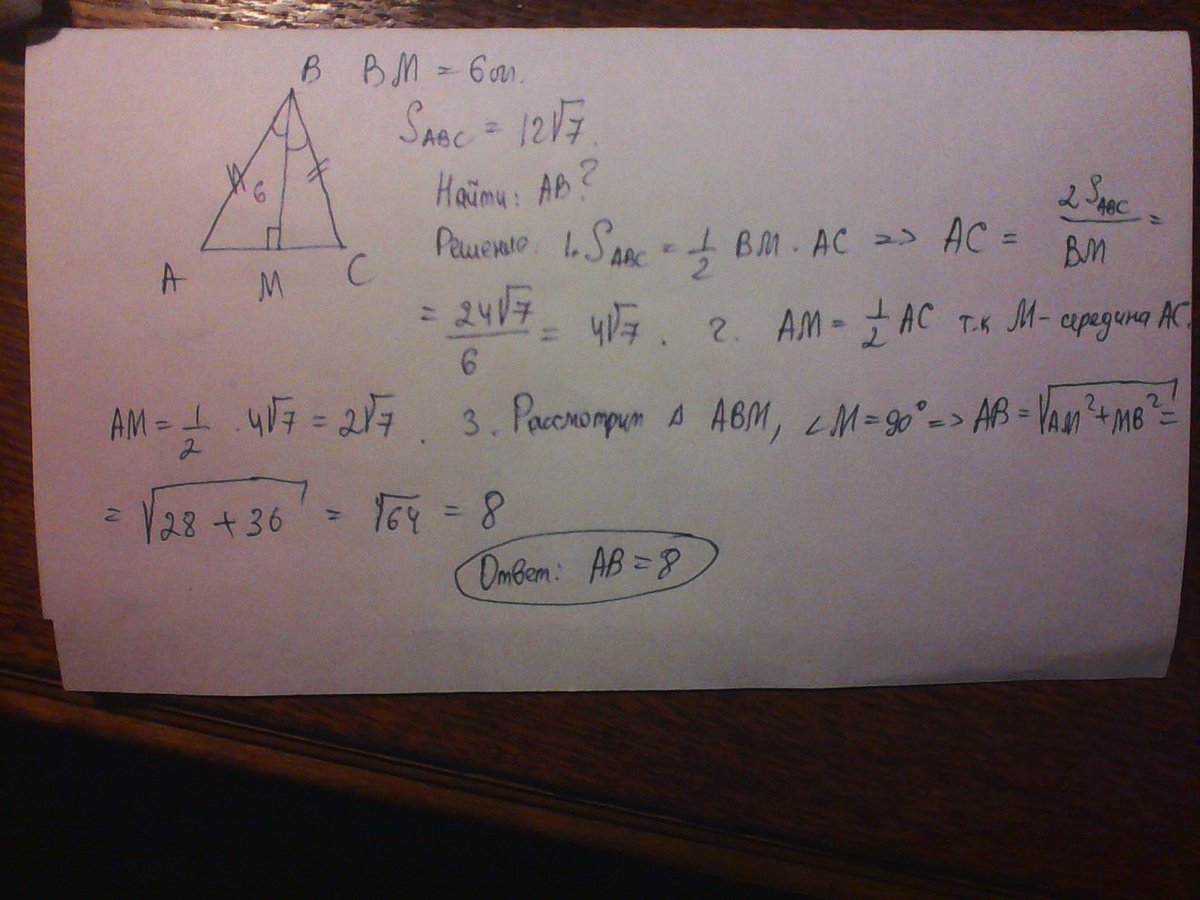 B BM = 6см.
S ABC = 12√7.
6
Найти: AB?
A M C
Решение: 1. S ABC = 1/2 BM · AC => AC = 2 S ABC / BM =
= 24√7 / 6 = 4√7. 2. AM = 1/2 AC т.к M - середина AC.
AM = 1/2 · 4√7 = 2√7. 3. Рассмотрим Δ ABM, ∠M = 90° => AB = √AM² + MB² =
= √28 + 36 = √64 = 8
Ответ: AB = 8